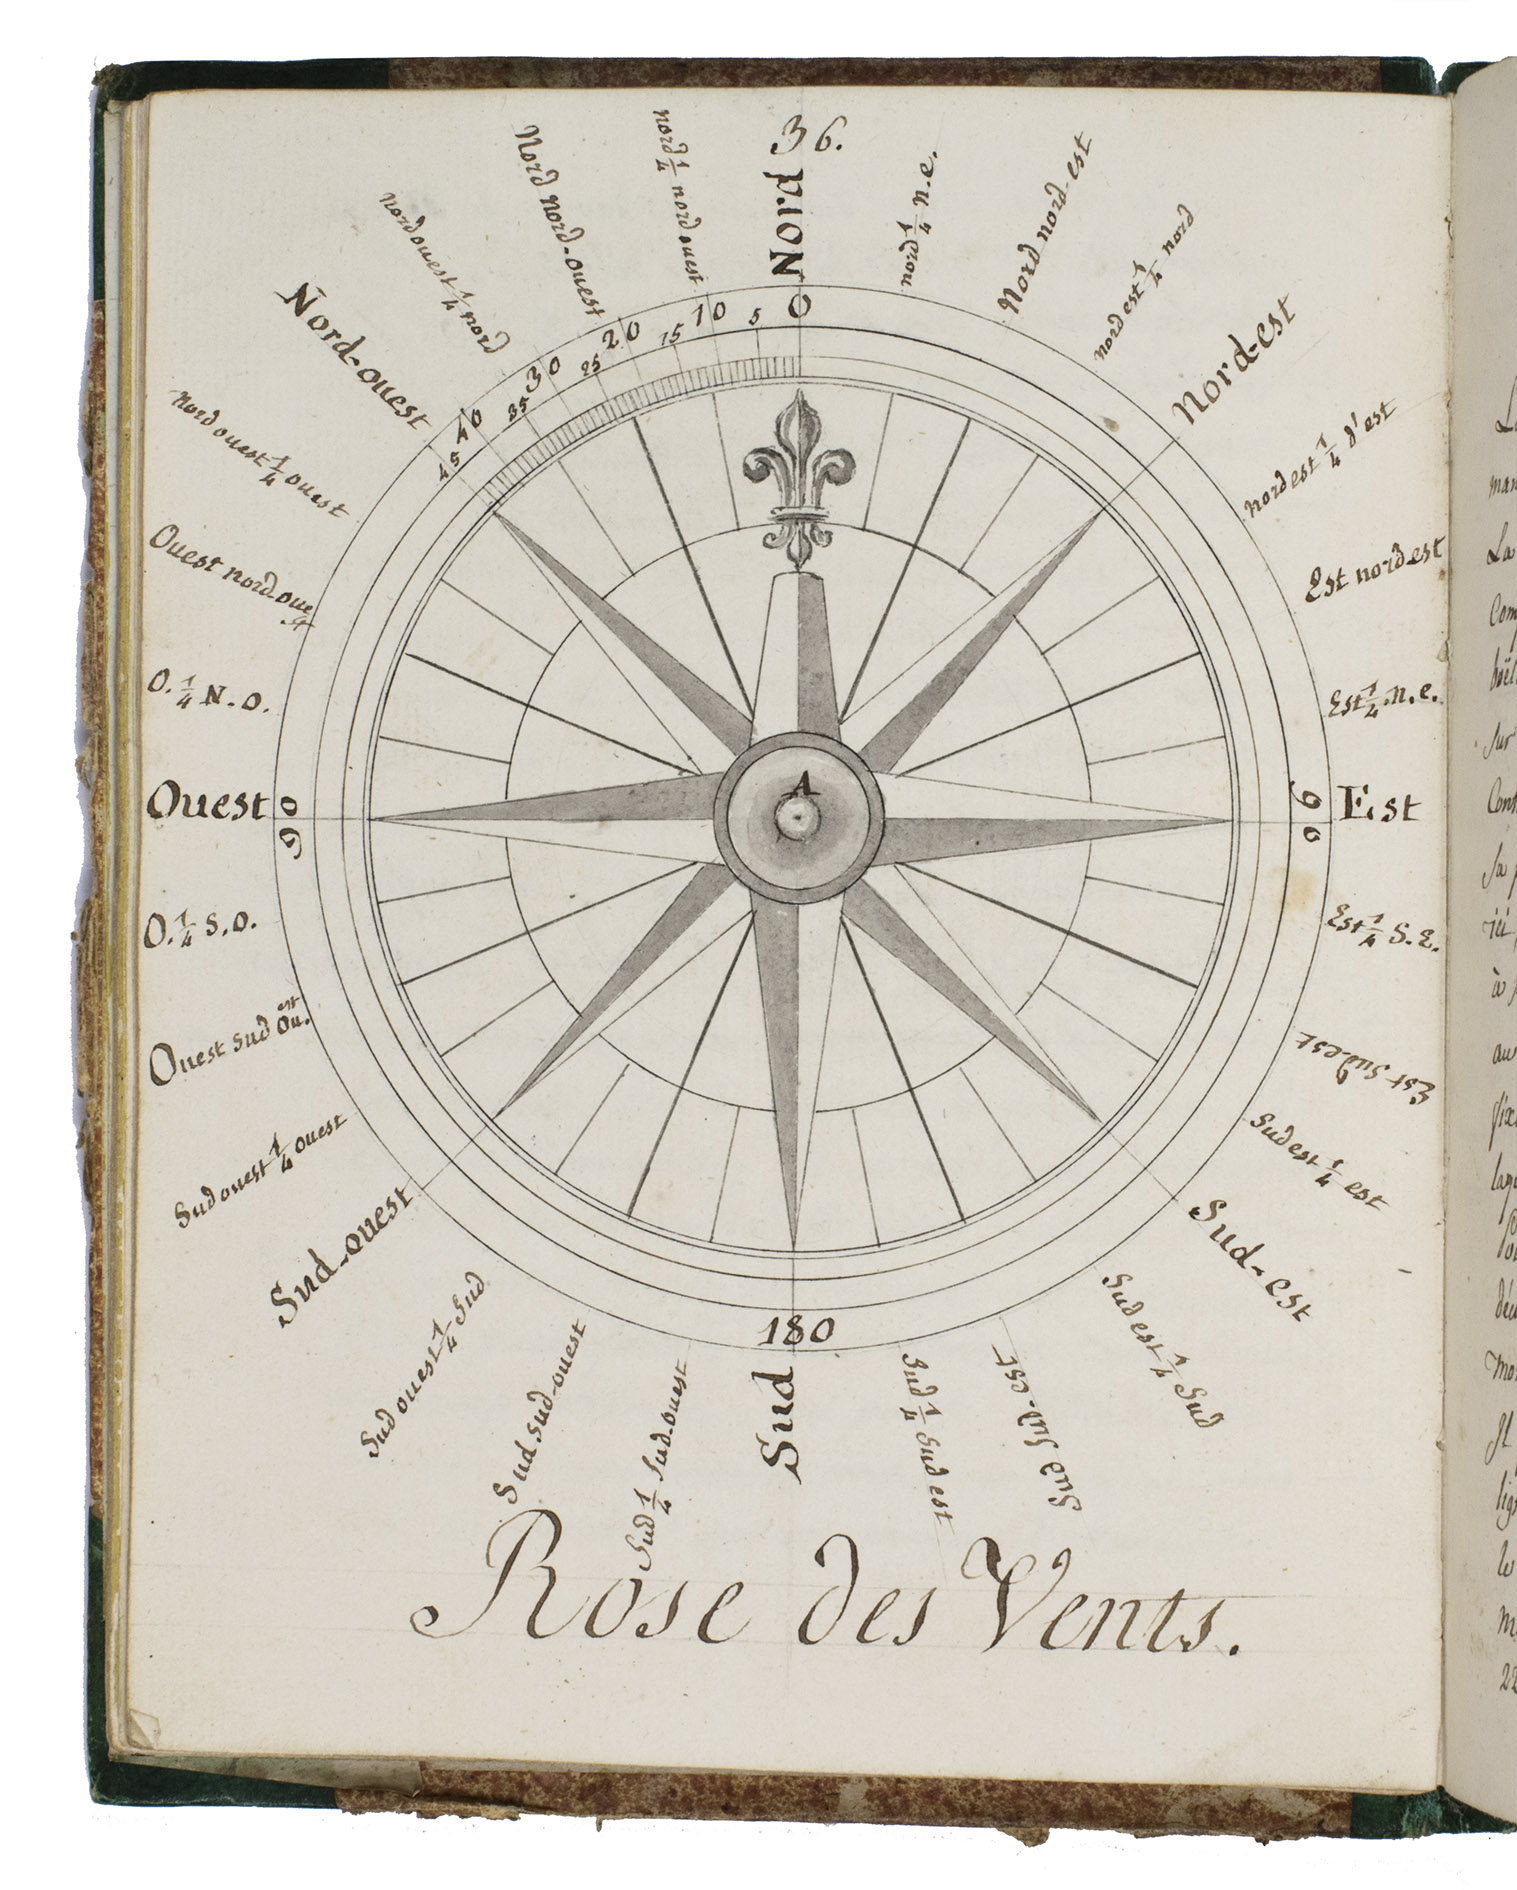 36.
Nord
nord 1/4 n.e.
Nord nord-est
nord est 1/4 nord
Nord-est
nord est 1/4 d'est
Est nord est
Est 1/4 n.e.
Est
Est 1/4 S.E.
Est Sud est
Sud est 1/4 est
Sud-est
Sud est 1/4 Sud
Sud Sud-est
Sud 1/4 Sud est
Sud
Sud 1/4 Sud-ouest
Sud Sud-ouest
Sud ouest 1/4 Sud
Sud-ouest
Sud ouest 1/4 ouest
Ouest Sud Ouest.
O. 1/4 S.O.
Ouest
O. 1/4 N.O.
Ouest nord-ouest
nord ouest 1/4 ouest
Nord-ouest
nord ouest 1/4 nord
Nord nord-ouest
nord 1/4 nord ouest
0
5
10
15
20
25
30
35
40
45
90
180
90
A
Rose des Vents.
La
Sur
à
22